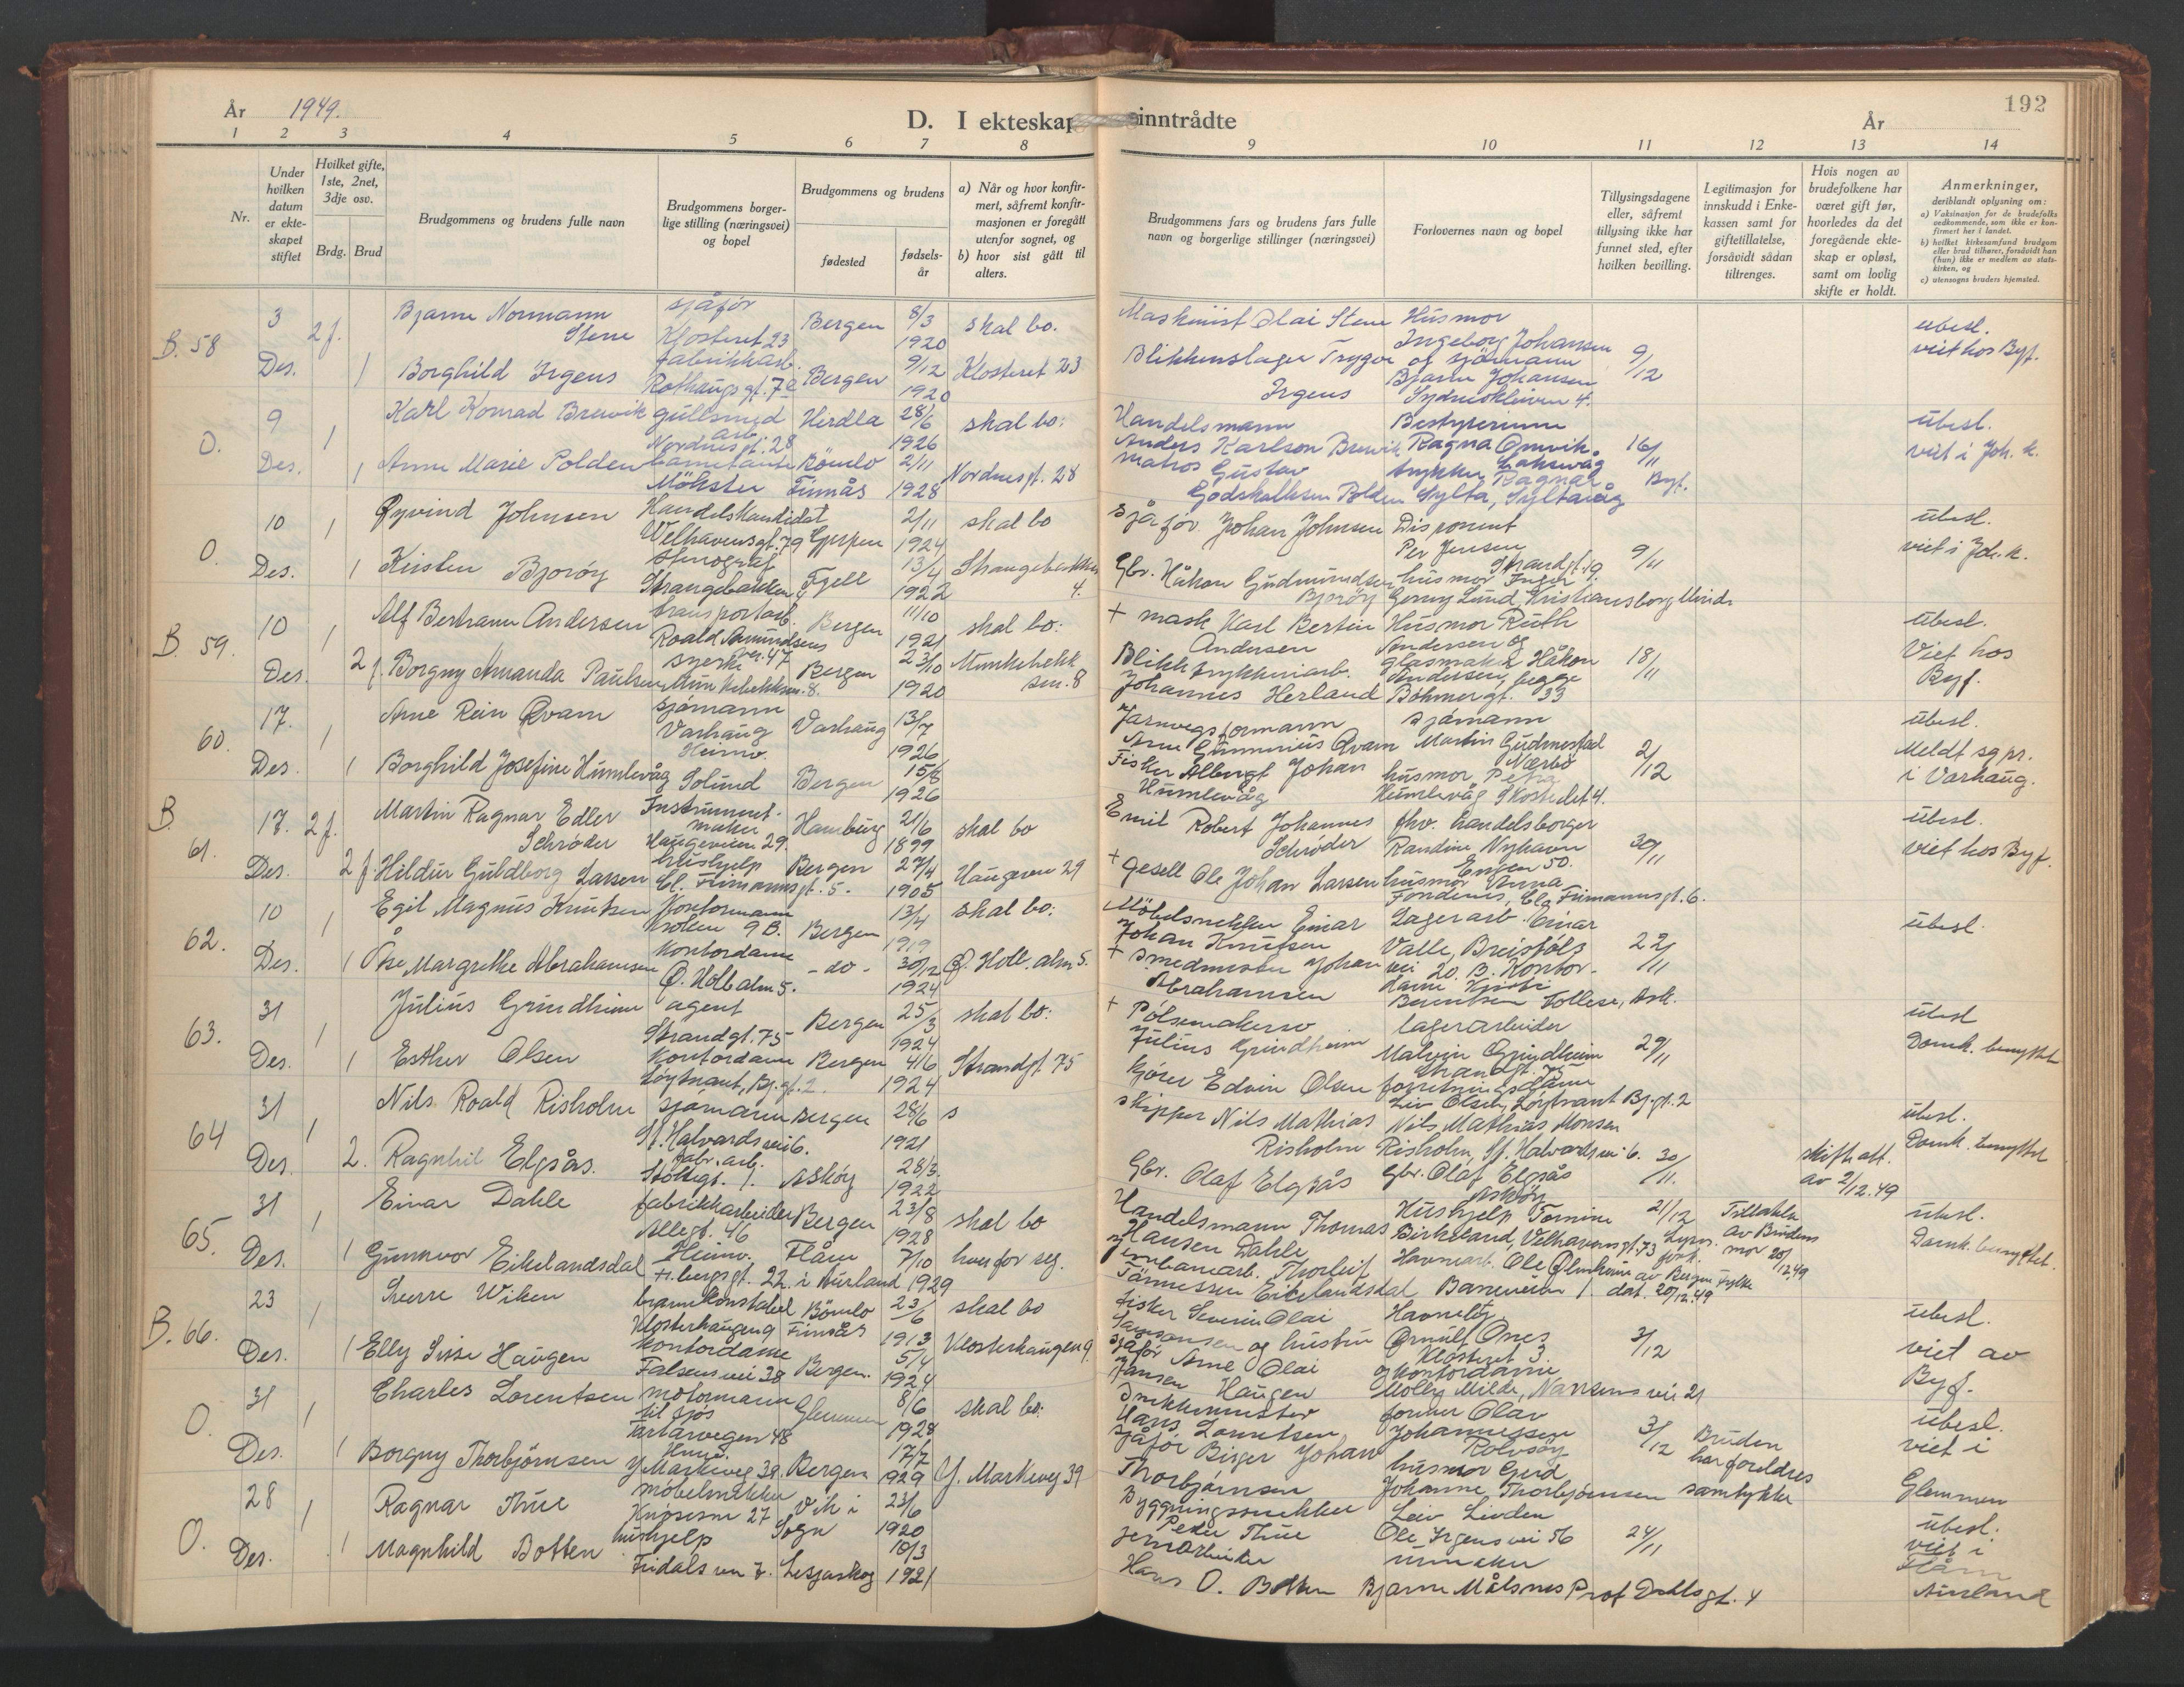 År 1949.
D. I ekteskap inntrådte
År
192
1 2 3 4 5 6 7 8 9 10 11 12 13 14
Nr.
Under hvilken datum er ekteskapet stiftet
Hvilket gifte, 1ste, 2net, 3dje osv.
Brdg. Brud
Brudgommens og brudens fulle navn
Brudgommens borgerlige stilling (næringsvei) og bopel
Brudgommens og brudens
fødested
fødselsår
a) Når og hvor konfirmert, såfremt konfirmasjonen er foregått utenfor sognet, og
b) hvor sist gått til alters.
Brudgommens fars og brudens fars fulle navn og borgerlige stillinger (næringsvei)
Forlovernes navn og bopel
Tillysingsdagene eller, såfremt tillysing ikke har funnet sted, efter hvilken bevilling.
Legitimasjon for innskudd i Enkekassen samt for giftetillatelse, forsåvidt sådan tiltrenges.
Hvis nogen av brudefolkene har været gift før, hvorledes da det foregående ekteskap er opløst, samt om lovlig skifte er holdt.
Anmerkninger, deriblandt oplysning om:
a) Vaksinasjon for de brudefolks vedkommende, som ikke er konfirmert her i landet.
b) hvilket kirkesamfund brudgom eller brud tilhører, forsåvidt han (hun) ikke er medlem av statskirken, og
c) utensogns bruders hjemsted.
B. 58 3 Des. 2 f. Bjarne Normann Stene sjåfør Klosteret 23 Bergen 8/3 1920 skal bo. Maskinist Olai Stene Husmor Ingeborg Johansen og sjømann Bjarne Johansen Sydneskleiven 4. 9/12 ubesl. viet hos Byf.
1 Borghild Irgens fabrikkarb. Rothaugsgt. 7a Bergen 9/12 1920 Klosteret 23 Blikkenslager Trygve Irgens
O. 9 Des. 1 Karl Konrad Brewik gullsmed arb. Nordnesgt. 28 Herdla 28/6 1926 skal bo: Handelsmann Anders Karlson Brewik Bestyrerinne Ragna Laksevåg 16/11 Byf. ubesl. viet i Joh. k.
1 Anne Marie Polden barnetante Møkster Bømlo Finnås 2/11 1928 Nordnesgt. 28 Matros Gustav Godskalksen Polden trykker Ragnar Sylta, Syltavåg
O. 10 Des. 1 Øyvind Johnsen Handelskandidat Welhavensgt. 79 Gjerpen 2/11 1924 skal bo sjåfør Johan Johnsen Disponent Per Jensen Strandgt. 9/11 ubesl. viet i Joh. k.
1 Kirsten Bjorøy stenograf Strangebakken 4 Fjell 13/4 1922 Strangebakken 4. Gbr. Håkon Gudmundsen Bjorøy husmor Inger Gerny Lund, Kristiansborg, Minde
B. 59. 10 Des. 1 Alf Bertram Andersen transportarb. Roald Amundsens vei 47 Bergen 11/10 1921 skal bo: + mask Karl Bertin Andersen Husmor Ruth Andersen og glasmaker Håkon Andersen, begge Böhmergt. 33 18/11 ubesl. Viet hos Byf.
2 f. Borgny Amanda Paulsen syerske Munkebekksm. 8. Bergen 23/10 1920 Munkebekksm. 8 Blikktrykkeriarb. Johannes Herland
60. 17. Des. 1 Arne Rein Qvam sjømann Varhaug Varhaug 13/7 1926 Jarnvegsformann Arne Gunnerius Qvam sjømann Martin Gudmestad Nærbø 2/12 ubesl. Meldt sg.pr. i Varhaug.
1 Borghild Josefine Humlevåg Heimv. Solund Bergen 15/8 1926 Fisker Albregt Johan Humlevåg husmor Petra Humlevåg Skostredet 4.
B 61. 17. Des. 2 f. Martin Ragnar Edler Schrøder Instrumentmaker Haugeveien 29. Hamburg 21/6 1899 skal bo Emil Robert Johannes Schrøder fhv. handelsborger Randine Nyhavn Engen 50. 30/11 ubesl. viet hos Byf.
2 f. Hildur Guldborg Larsen hushjelp Cl. Fimannsgt. 5. Bergen 27/4 1905 Haugeveien 29 + gesell Ole Johan Larsen husmor Anna Fondenes, Cla Fimannsgt. 6.
62. 10 Des. 1 Egil Magnus Knutsen Kontormann 9 B. Bergen 13/4 1919 skal bo: Møbelsnekker Einar Johan Knutsen Lagerarb. Einar Valle, Breistøls vei 20. B. 22/11 ubesl.
1 Åse Margrethe Abrahamsen Kontordame Ø. Holb. alm 5. -do- 30/12 1924 Ø. Holb. alm 5. + smedmester Johan Abrahamsen Kontordame Berentsen Follese, Ask.
63. 31 Des. 1 Julius Grindheim agent Strandgt. 75 Bergen 25/3 1924 skal bo: + Pølsemakersv. Julius Grindheim lagerarbeider Malvin Grindheim Strandgt. 75 29/11 ubesl Domk. benyttet
1 Esther Olsen Kontordame Løytnant, Bj. gt. 2. Bergen 4/6 1924 Strandgt. 75 Kjører Edvin Olsen forretningsdame Liv Olsen, Løytnant Bj. gt. 2
64 31 Des. 1 Nils Roald Risholm sjømann St. Halvards vei 6. Bergen 28/6 1921 s skipper Nils Mathias Risholm Nils Mathias Monsen Risholm, St. Halvards vei 6. 30/11. skifte att. av 2/12.49 ubesl. Domk. benyttet
2. Ragnhil Elgsås. fabr. arb. Støllegt. 1. Askøy 28/3. 1922 Gbr. Olaf Elgsås Gbr. Olaf Elgsås Askøy
65. 31 Des. 1 Einar Dahle fabrikkarbeider Allegt. 46 Bergen 23/8 1928 skal bo Handelsmann Thomas Hansen Dahle Hushjelp Tomine Birkeland, Welhavensgt. 73 21/12 Lysn. av Bergen Fylke dat. 20/12.49 Tillatelse av Brudens mor 20/12.49 ubesl. Domk. benyttet.
1 Gunnvor Eikelandsdal Heimv. bergsgt. 22. Flåm i Aurland 7/10 1929 hver for seg. Jernbanearb. Thorleif Tønnessen Eikelandsdal Havnearb. Ole Baneveien 1
B. 66. 23 Des. 1 Sverre Wiken brannkonstabel Klosterhaugen 9 Bømlo Finnås 23/6 1913 skal bo fisker Severin Olai Havneløy Ørnulf Ones Klosteret 3. 3/12 ubesl. viet av Byf.
1 Elly Sisse Haugen Kontordame Falsens vei 38 Bergen. 5/4 1924 Klosterhaugen 9. sjåfør Arne Olai Jansen Haugen og kontordame Molly Milde, Nansens vei 21
O. 31 Des. 1 Charles Lorentsen motormann til sjøs Tartarvegen 48 Glemmen 8/6 1928 skal bo: Snekkermester Hans Lorentsen former Olav Johannessen Rolvsøy 3/12 Bruden har foreldres samtykke ubesl. viet i Glemmen
1 Borgny Thorbjørnsen Y. Markeveg 39 Bergen 17/7 1929 Y. Markeveg 39 sjåfør Birger Johan Thorbjørnsen husmor Gerd Johanne Thorbjørnsen
O. 28 Des. 1 Ragnar Thue møbelsnekker Knøsesm 27 Vik i Sogn 23/6 1920 Byggningssnekker Peder Thue Leiv Livden Ole Irgens vei 56 24/11 ubesl. viet i Flåm Aurland
1 Magnhild Botten hushjelp Fridalsven 7. Lesjaskog 10/3 1921 jernarbeider Hans O. Botten urmaker Bjarne Målsnes Prof Dahls gt. 4